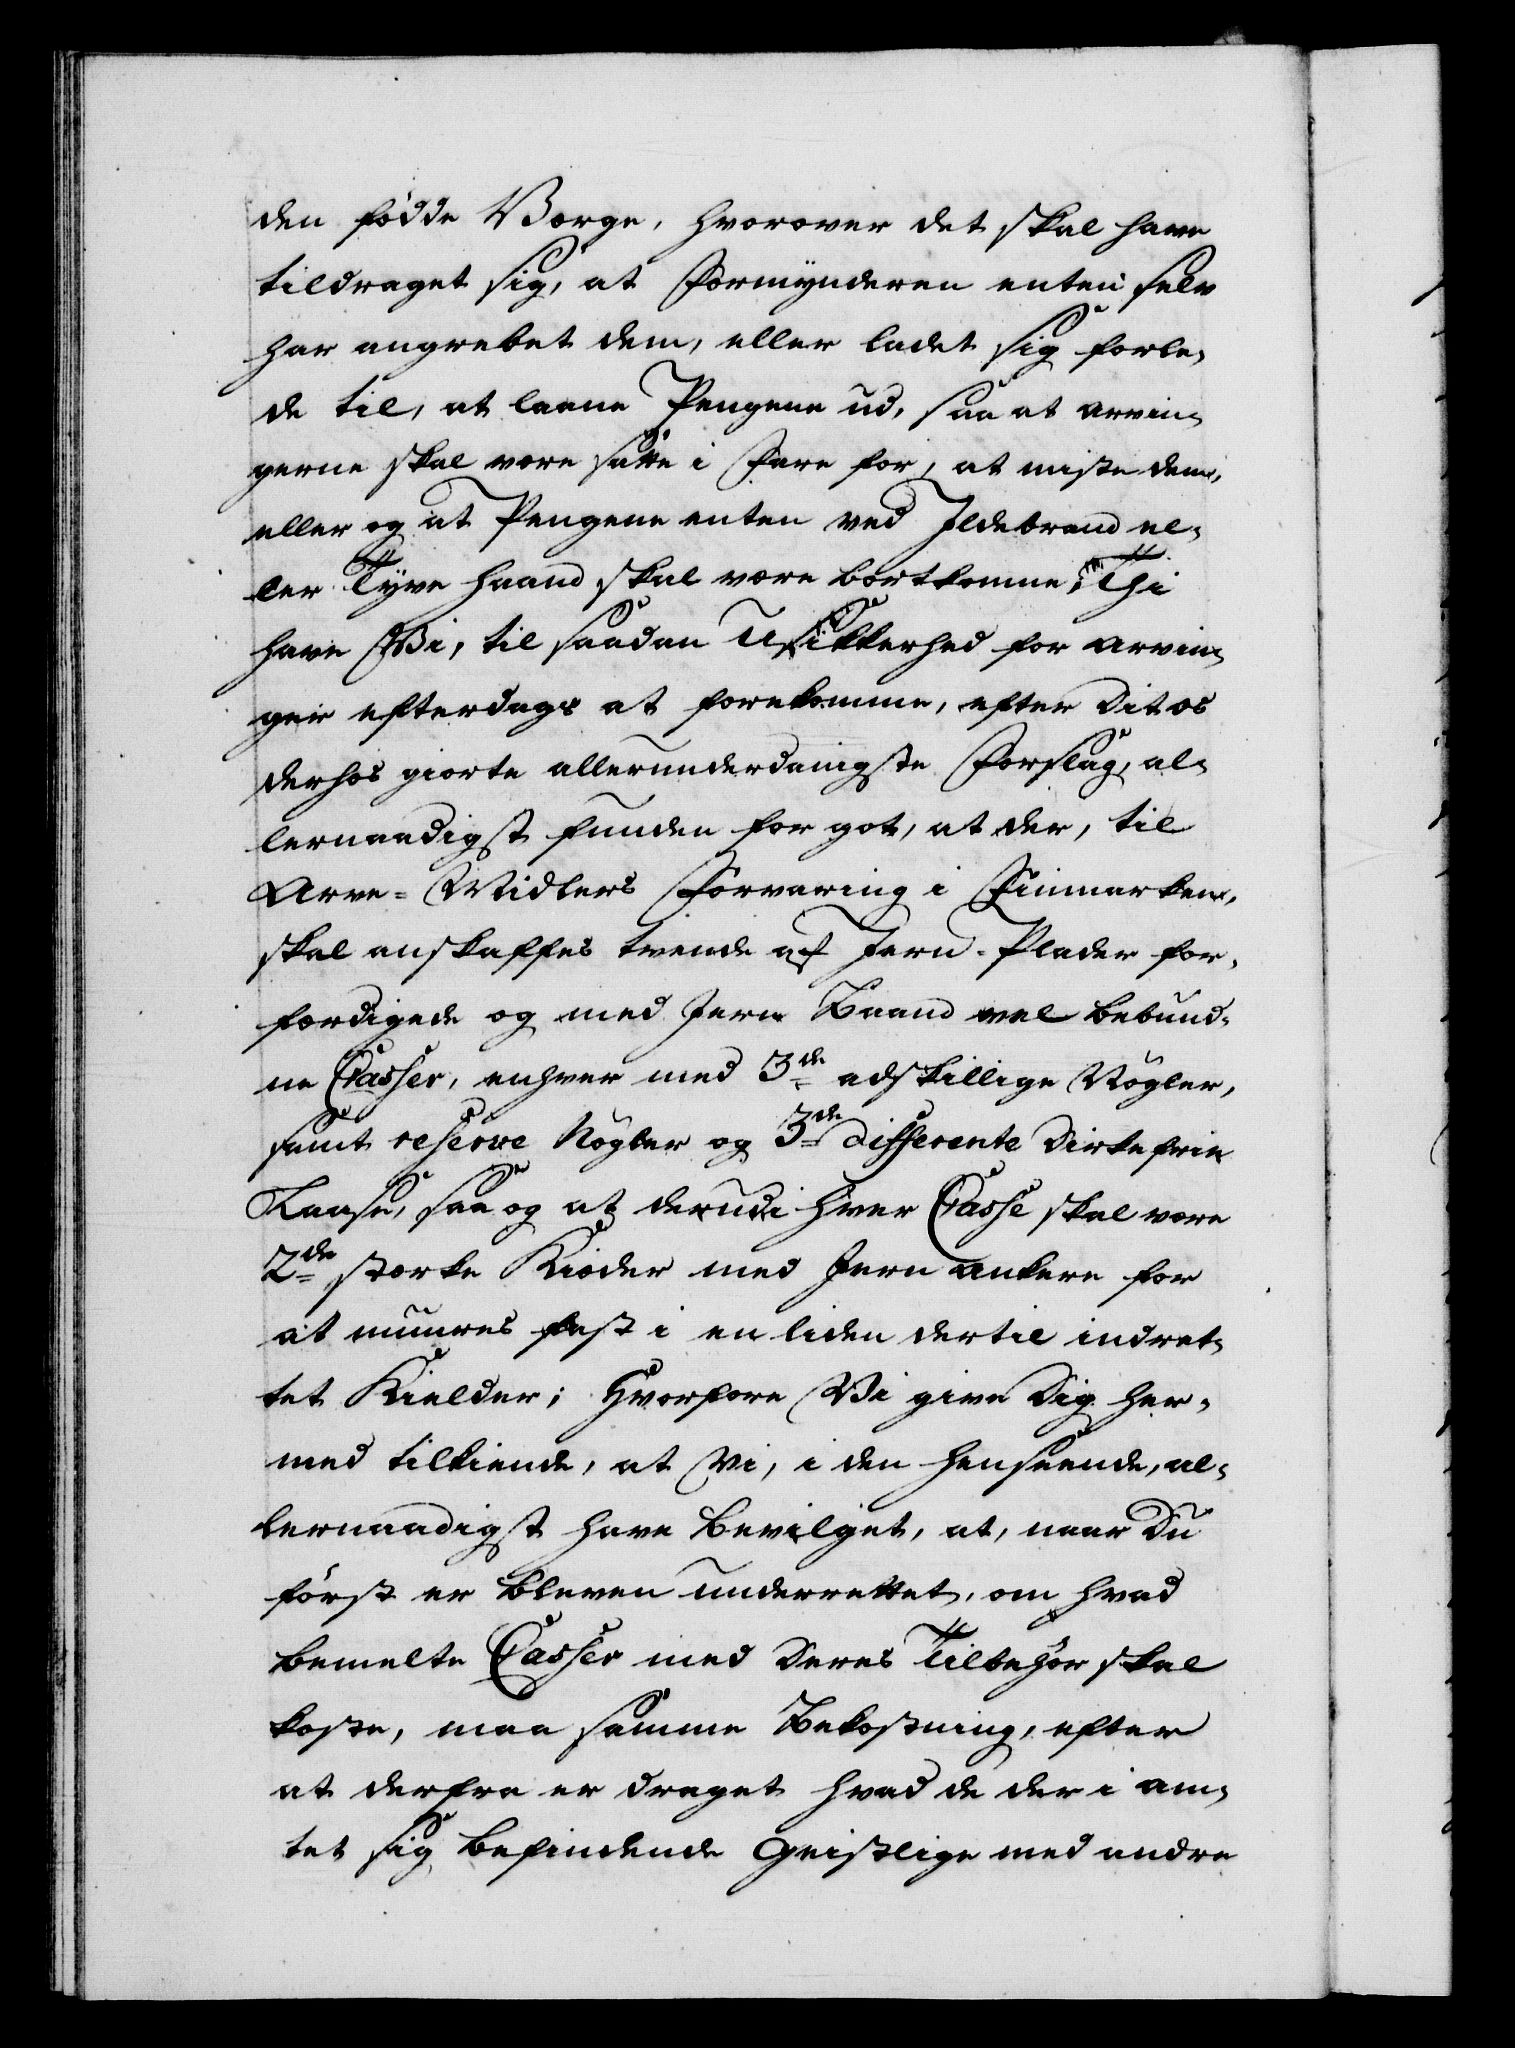 den födde Værge, hvorover det skal have
tildraget sig, at Formynderen enten selv
har angrebet dem, eller ladet sig forle,
de til, at laane Pengene ud, saa at arvin,
gerne skal være satte i Fare for, at miste dem,
eller og at Pengene enten ved Ildebrand el,
ler Tyve Haand skal være bortkomne; Thi
have Vi, til saadan Usikkerhed for arvin,
ger efterdags at forekomme, efter dit os
derhos giorte allerunderdanigste Forslag, al,
lernaadigst funden for got, at der, til
Arve-Midlers Forvaring i Finmarken,
skal anskaffes trende af Jern-Plader for,
færdigede og med Jern Baand vel bebund,
ne Casser, enhver med 3de adskillige Nögler,
samt reserve Nögler og 3de differente dirkefrie
Laase, saa og at derudi hver Casse skal være
2de stærke Kiæder med Jern ankere for
at muures fast i en liden dertil indret,
tet Kielder; Hvorfore Vi give dig her,
med tilkiende, at Vi, i den Henseende, al,
lernaadigst have bevilget, at, naar Du
först er bleven underrettet, om hvad
bemelte Casser med deres Tilbehör skal
koste, maa samme Bekostning, efter
at derfra er draget hvad de der i am,
tet sig befindende Geistlige med andre